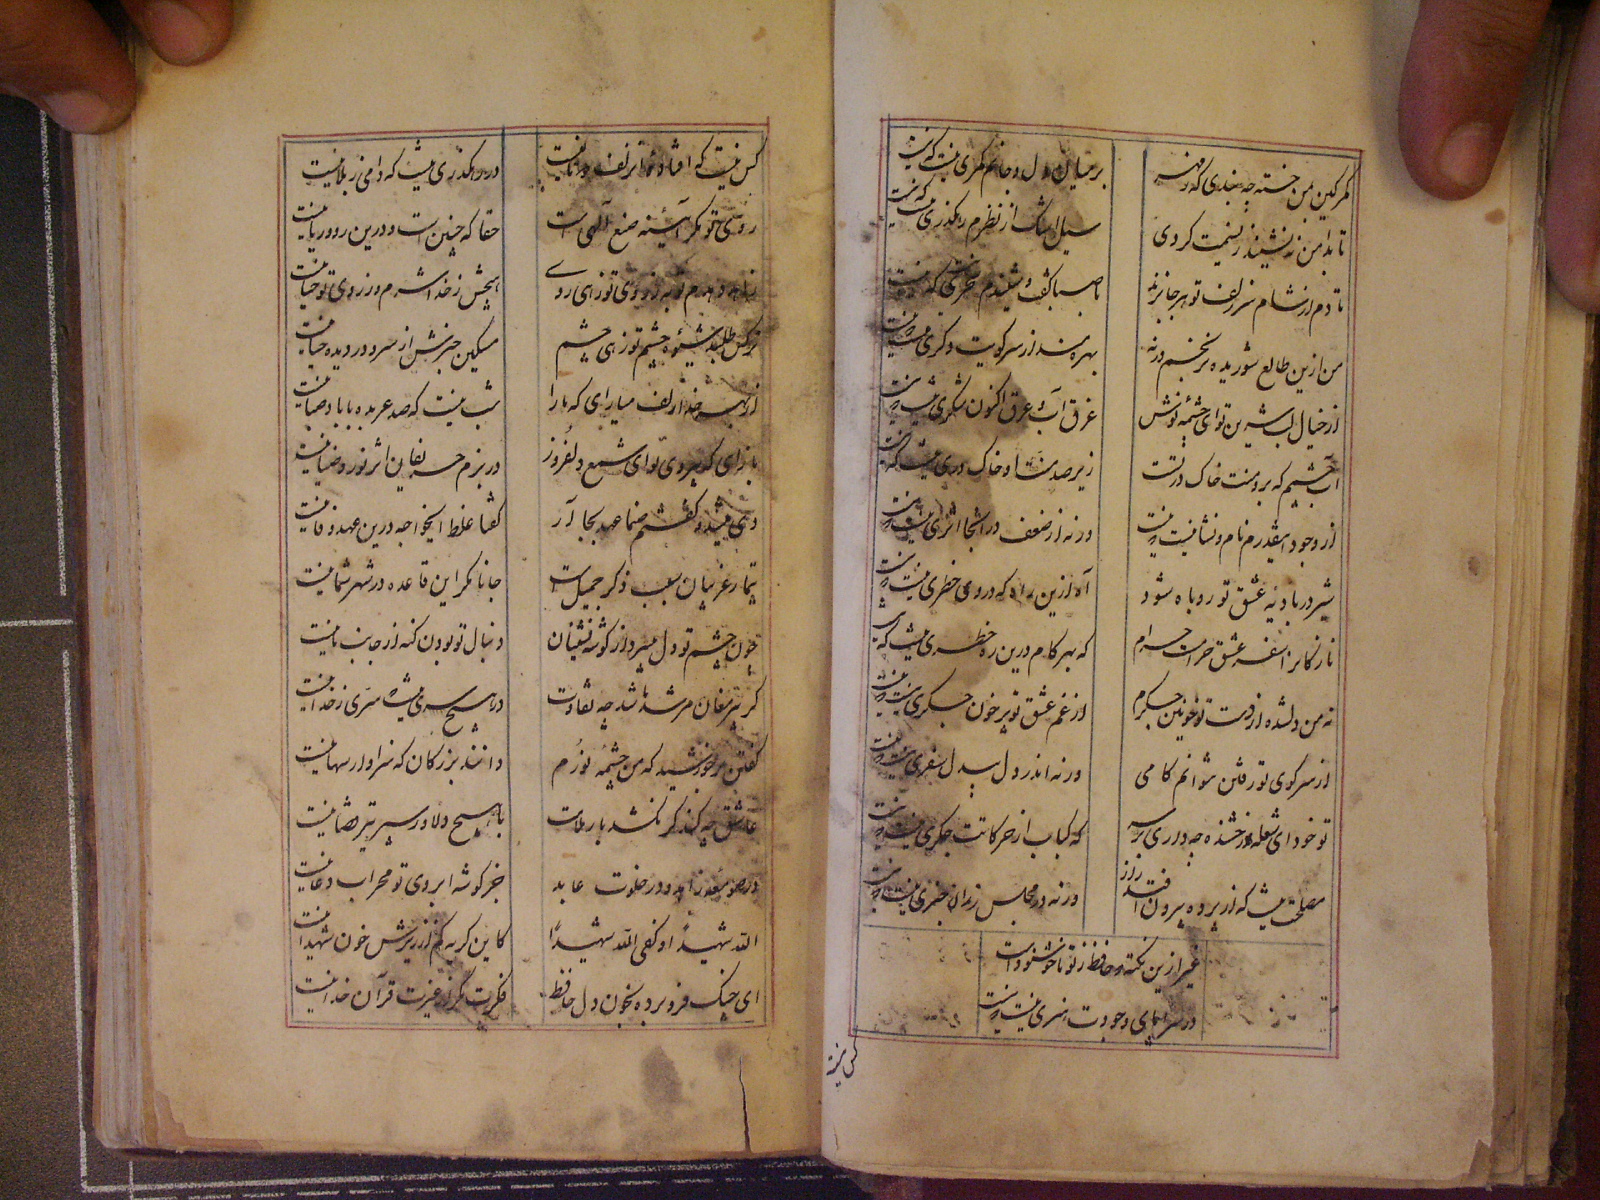 کمر کین من خسته چه بندی که ز مهر بر میان دل و جانم کمری نیست که نیست
تا بدامن ننشیند ز نسیمت گردی سیل اشک از نظرم رهگذری نیست که نیست
تا دم از شام سر زلف تو هر جا نزند با صبا گفت و شنیدم سحری نیست که نیست
من ازین طالع شوریده برنجم ورنه بهره مند از سر کویت دگری نیست که نیست
از خیال لب شیرین تو ای چشمه نوش غرق آب و عرق اکنون شکری نیست که نیست
آب چشمم که برو منت خاک در تست زیر صد منت او خاک دری نیست که نیست
از وجود اینقدرم نام و نشانیست که هست ورنه از ضعف در آنجا اثری نیست که نیست
شیر در بادیه عشق تو روباه شود آه ازین راه که در وی خطری نیست که نیست
نازکانرا سفر عشق حرامست حرام که بهر کام درین ره خطری نیست که نیست
نه من دلشده از دست تو خونین جگرم از غم عشق تو پر خون جگری نیست که نیست
از سر کوی تو رفتن نتوانم کامی ورنه اندر دل بیدل سفری نیست که نیست
تو خود ای شعله رخشنده چه داری بر سر که کباب از حرکاتت جگری نیست که نیست
مصلحت نیست که از پرده برون افتد راز ورنه در مجلس رندان خبری نیست که نیست
غیر ازین نکته که حافظ ز تو ناخوشنودست
در سراپای وجودت هنری نیست که نیست
کس نیست
کس نیست که افتاده آن زلف دوتا نیست در رهگذری نیست که دامی ز بلا نیست
روی تو مگر آئینه صنع الهی است حقا که چنین است و درین رو و ریا نیست
زاهد دهدم توبه ز روی تو زهی روی هیچش ز خدا شرم و ز روی تو حیا نیست
نرگس طلبد شیوه چشم تو زهی چشم مسکین خبرش از سر و در دیده حیا نیست
از بهر خدا زلف میارای که ما را شب نیست که صد عربده با باد صبا نیست
بازآی که بی روی تو ای شمع دلفروز در بزم حریفان اثر نور و ضیا نیست
دی میشد و گفتم صنما عهد بجا آر گفتا غلط ای خواجه درین عهد وفا نیست
تیمار غریبان سبب ذکر جمیل است جانا مگر این قاعده در شهر شما نیست
چون چشم تو دل میبرد از گوشه نشینان دنبال تو بودن گنه از جانب ما نیست
گر پیر مغان مرشد ما شد چه تفاوت در هیچ سری نیست که سری ز خدا نیست
گفتن بر خورشید که من چشمه نورم دانند بزرگان که سزاوار سها نیست
عاشق چه کند گر نکشد بار ملامت با هیچ دلاور سپر تیر قضا نیست
در صومعه زاهد و در خلوت عابد جز گوشه ابروی تو محراب دعا نیست
الله شهیدًا و کفی الله شهیدًا کاین گریه کم از ریزش خون شهدا نیست
ای چنگ فرو برده بخون دل حافظ فکرت مگر از غیرت قرآن خدا نیست